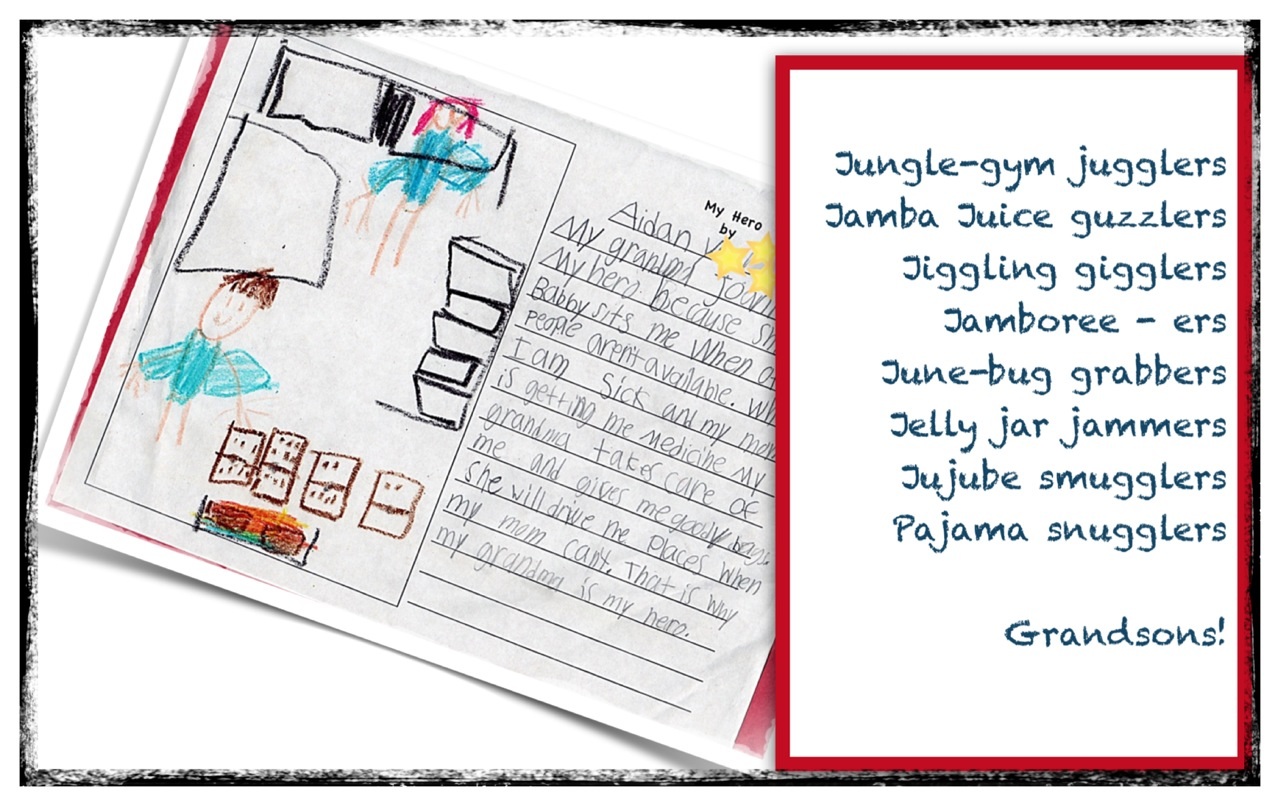 My Hero
by
Aidan
My grandma
My hero because
Babby sits me When
People aren't available.
I am Sick and my mom
is getting me Medicine My
grandma takes care of
me and gives me goody bags.
she will drive me Places When
my mom can't. That is why
my grandma is my hero.
Jungle-gym jugglers
Jamba Juice guzzlers
Jiggling gigglers
Jamboree - ers
June-bug grabbers
Jelly jar jammers
Jujube smugglers
Pajama snugglers
Grandsons!